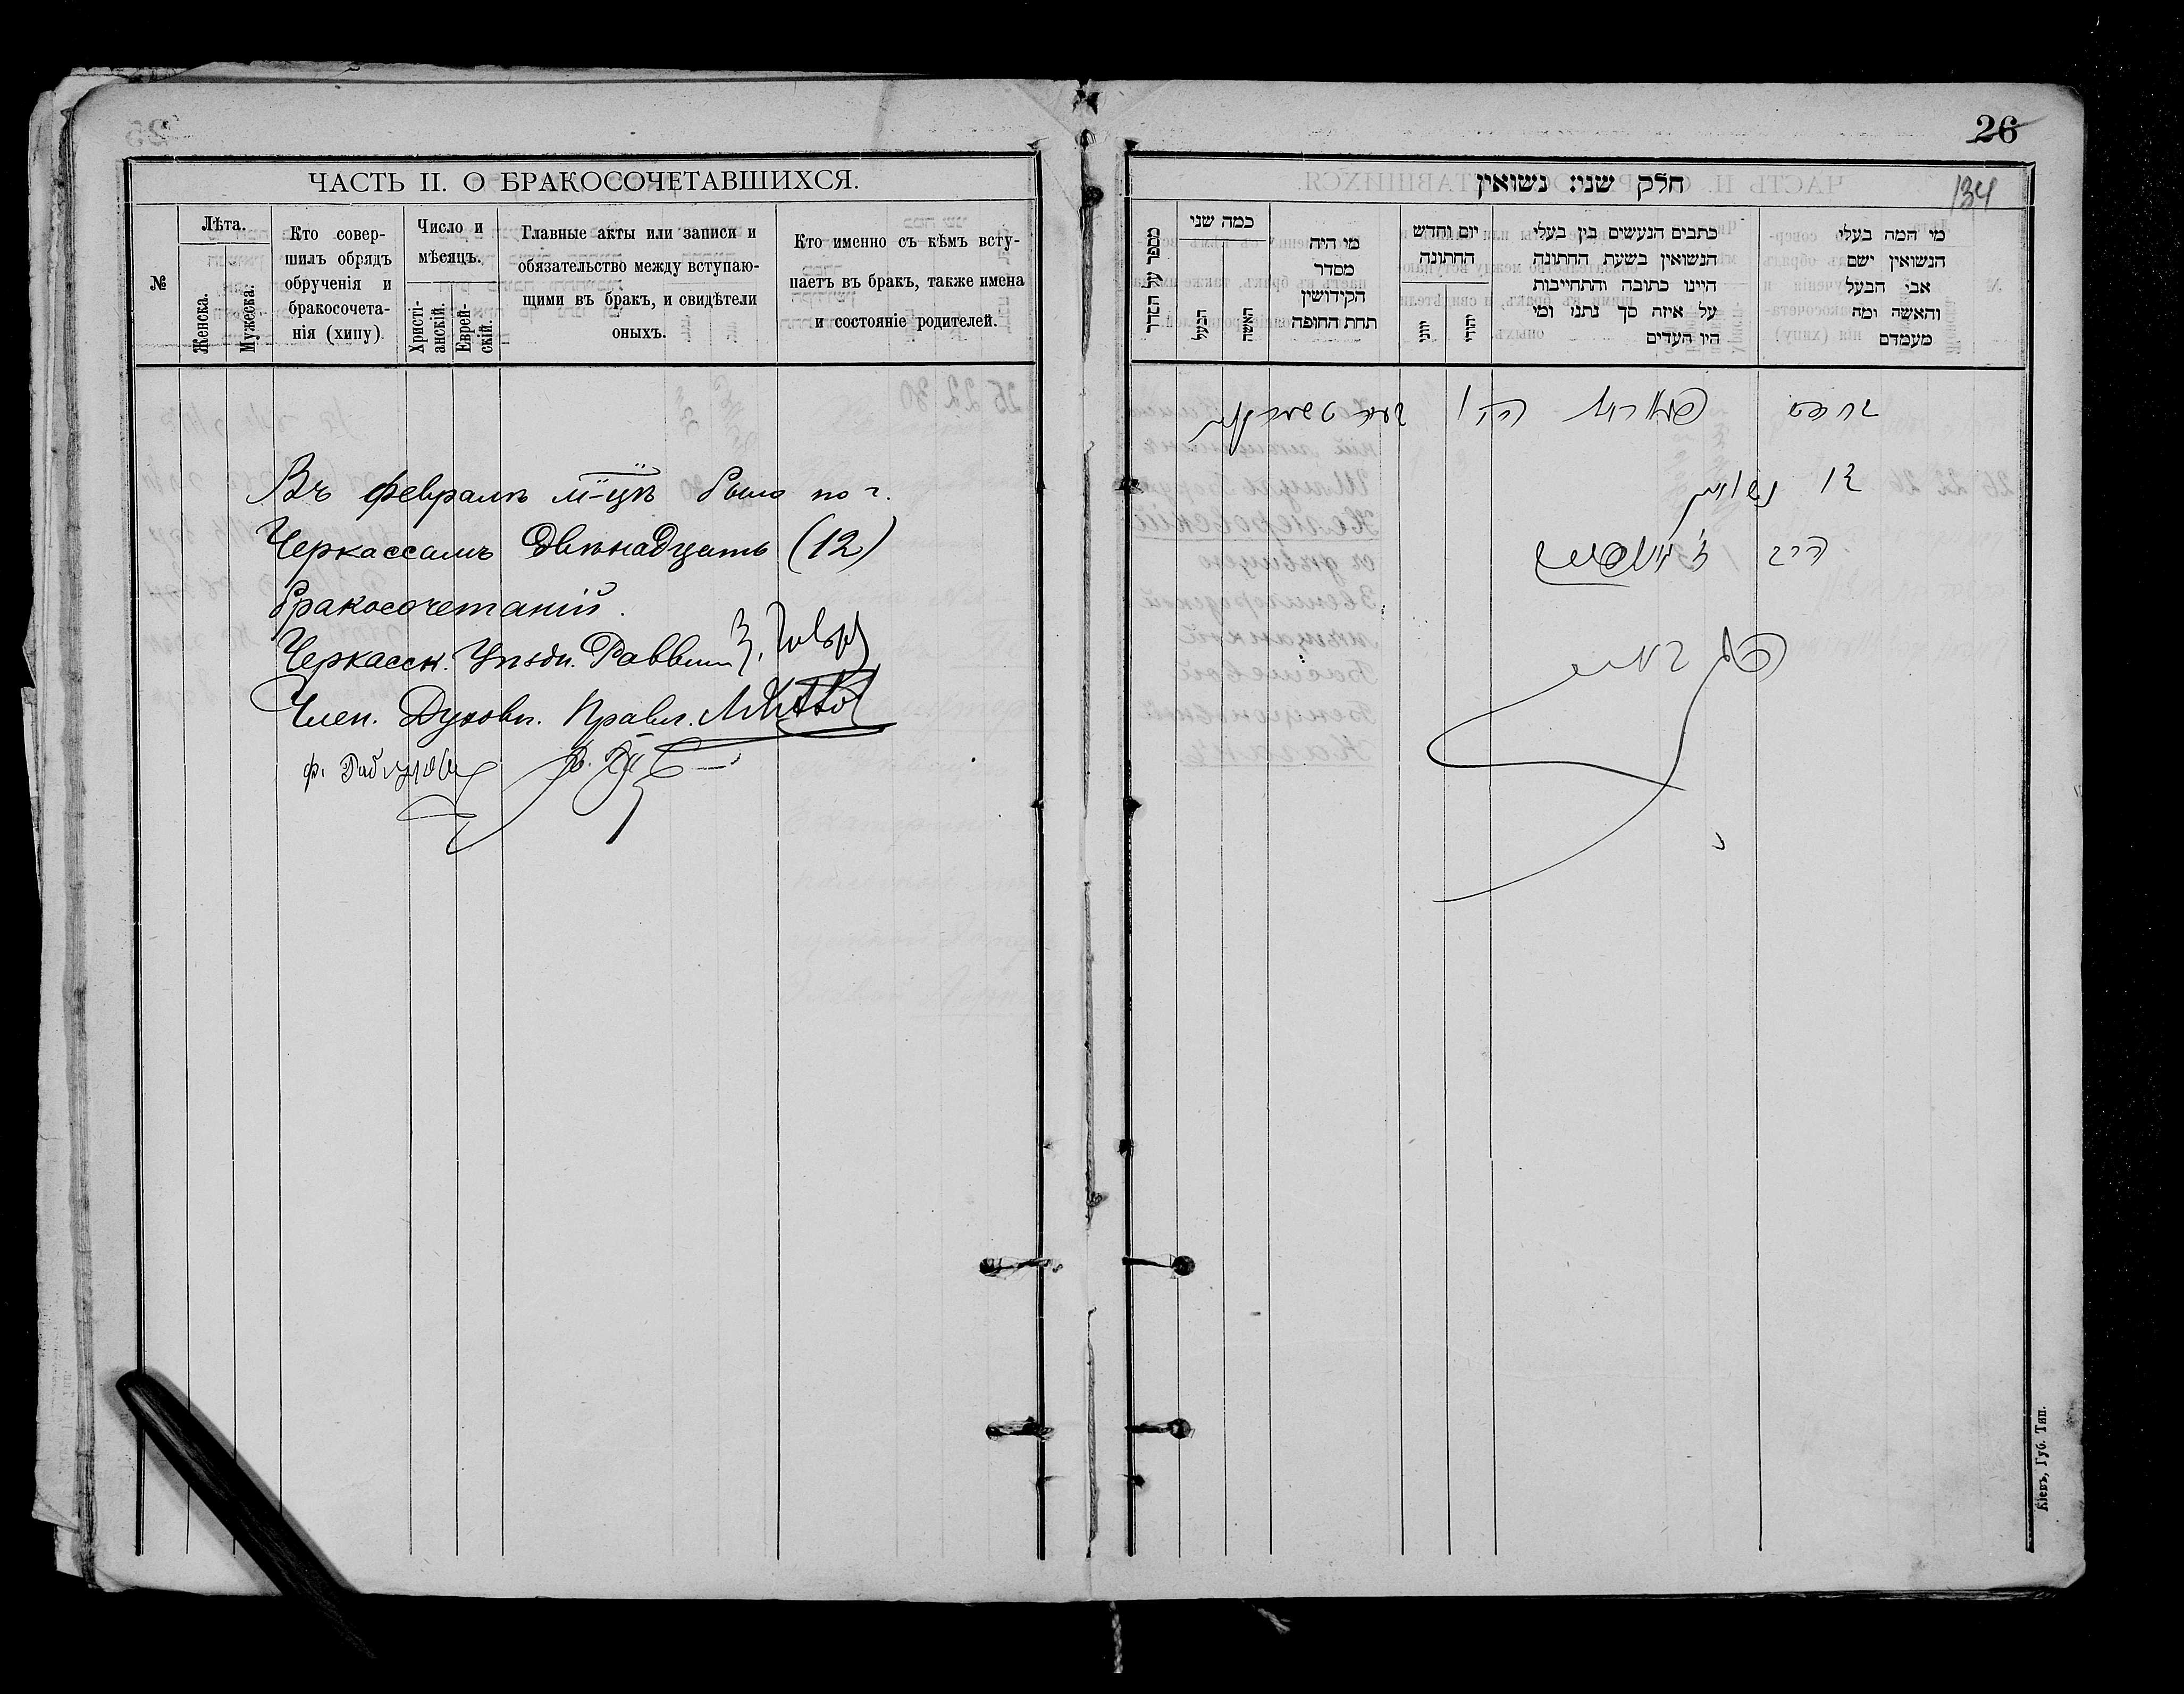 ЧАСТЬ II. О БРАКОСОЧЕТАВШИХСЯ.
№
Лѣта.
Женска.
Мужеска.
Кто совер-
шилъ обрядъ
обрученія и
бракосочета-
нія (хипу)
Число и
мѣсяцъ.
Христі-
анскій.
Еврей-
скій.
Главные акты или записи и
обязательство между вступаю-
щими въ бракъ, и свидѣтели
оныхъ.
Кто именно съ кѣмъ всту-
паетъ въ бракъ, также имена
и состояніе родителей.
Въ февралѣ м-цѣ было по г.
Черкассамъ двѣнадцать (12)
бракосочетаній.
Черкасск. Уѣздн. Раввин
Член. Духовн. Правл.
26
134
חלק שני: נשואין
מי המה בעלי
הנשואין ושם
אבי הבעל
והאשה ומה
מעמדם
כתבים הנעשים בין בעלי
הנשואין בשעת החתונה
היינו כתובה והתחייבות
על איזה סך נתנו ומי
היו העדים
יום וחדש
החתונה
יהודי
יווני
מי היה
מסדר
הקידושין
תחת החופה
כמה שני
האשה
הבעל
מספר על הסדר
12 נשואין
הרב
Кіевъ, Губ. Тип.